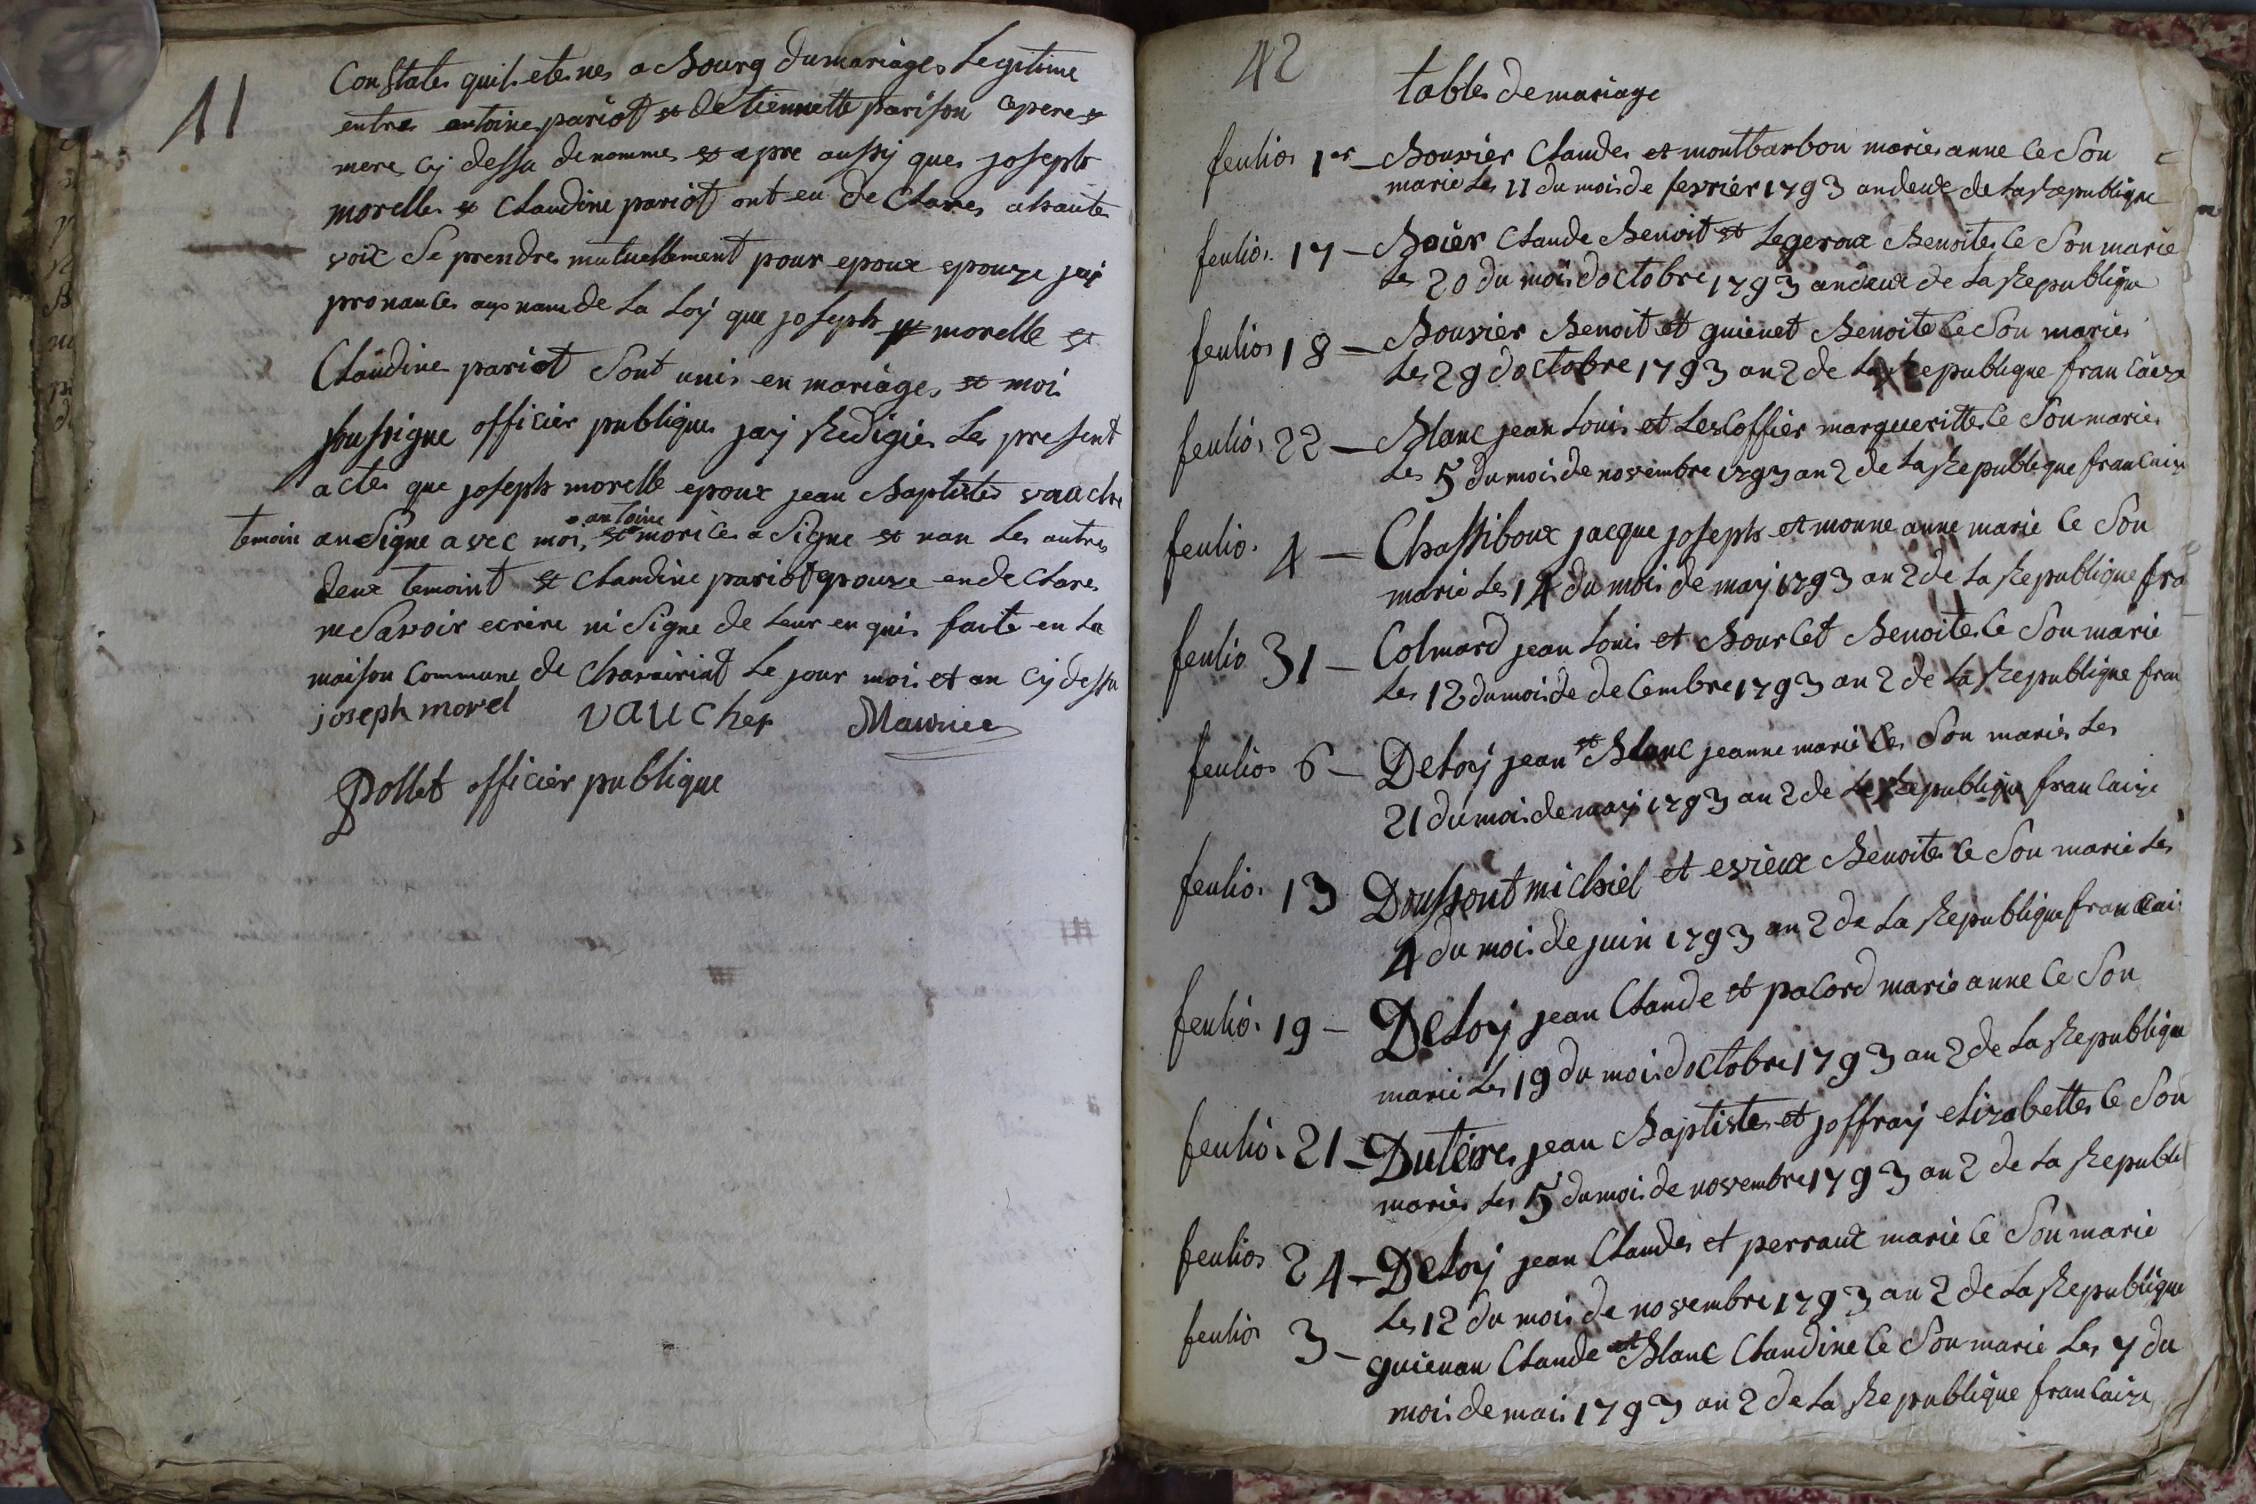 41
Constates quil etes nes a Bourg du mariages Legitime
entres antoines pariot et detiennette parison ce pere et
mere cy dessu denommes et apre aussy ques joseph
morelles et Claudine pariot ont eu de Clares a haute
voix Se prendres mutuellement pour epoux epouze jay
prononces aux nom de La Loy que joseph morelle et
Claudines pariot Sont unis en mariages et moi
soussigne officier publiques jay Redigies Les present
actes que joseph morelle epoux jean Baptistes vauche
temoin an Signe avec moi, et antoine morices a Signe et non Les autres
deux temoint et Claudine pariot epouze en de Clares
ne Savoir ecrire ni Signe de Leur en quis faite en La
maison Commune de Chavairiat Le jour mois et an cy dessu
joseph morel vaucher Maurice
Pollet officier publique
42
tables de mariage
feulios 1er — Bouvier Claudes et montbarbon maries anne Ce Son
marie Les 11 du mois de fevrier 1793 an deux de La Republique
feulios 17 — Boier Claude Benoit et Legeroux Benoites Ce Son marie
Les 20 du mois doctobre 1793 an deux de La Republique
feulios 18 — Bouvier Benoit et guienet Benoite Ce Son maries
Les 29 doctobre 1793 an 2 de La Republique francaize
feulios 22 — Blanc jean Louis et Lescoffier margueritte Ce Son maries
Les 5 du mois de novembre 1793 an 2 de La Republique francaise
feulio 4 — Chassiboux jacque joseph et monne anne marie Ce Son
marie Les 14 du mois de may 1793 an 2 de La Republique fra
feulio 31 — Colmard jean Louis et Bourcet Benoites Ce Son marie
Les 12 du mois de decembre 1793 an 2 de La Republique fran
feulios 6 — Deloy jean et Blanc jeanne marie Ces Son maries Les
21 du mois de may 1793 an 2 de La Republique francaize
feulios 13 Doussont michiel et evieux Benoites Ce Son marie Les
4 du mois de juin 1793 an 2 de La Republique francai
feulio 19 — Deloy jean Claude et pacord marie anne Ce Son
marie Les 19 du mois doctobre 1793 an 2 de La Republique
feulio 21 — Duteires jean Baptistes et joffray elizabettes Ce Son
maries Les 5 du mois de novembre 1793 an 2 de La Republi
feulios 24 — Deloy jean Claudes et perraux marie Ce Son marie
Les 12 du mois de novembre 1793 an 2 de La Republique
feulios 3 — guienan Claude et Blanc Claudine Ce Son marie Les 7 du
mois de mais 1793 an 2 de La Republique francaize